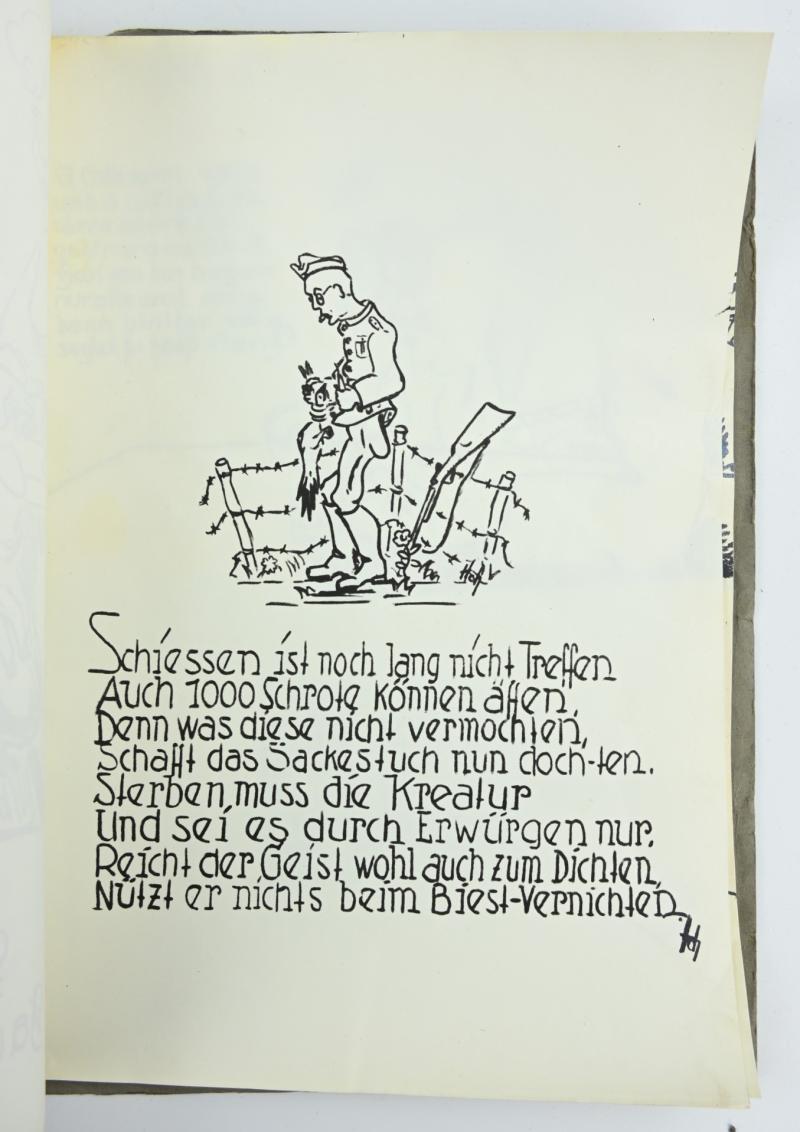 Hoh
Schiessen ist noch lang nicht Treffen
Auch 1000 Schrote können äffen,
Denn was diese nicht vermochten,
Schafft das Sackestuch nun doch-ten.
Sterben muss die Kreatur
Und sei es durch Erwürgen nur.
Reicht der Geist wohl auch zum Dichten,
Nützt er nichts beim Biest-Vernichten.